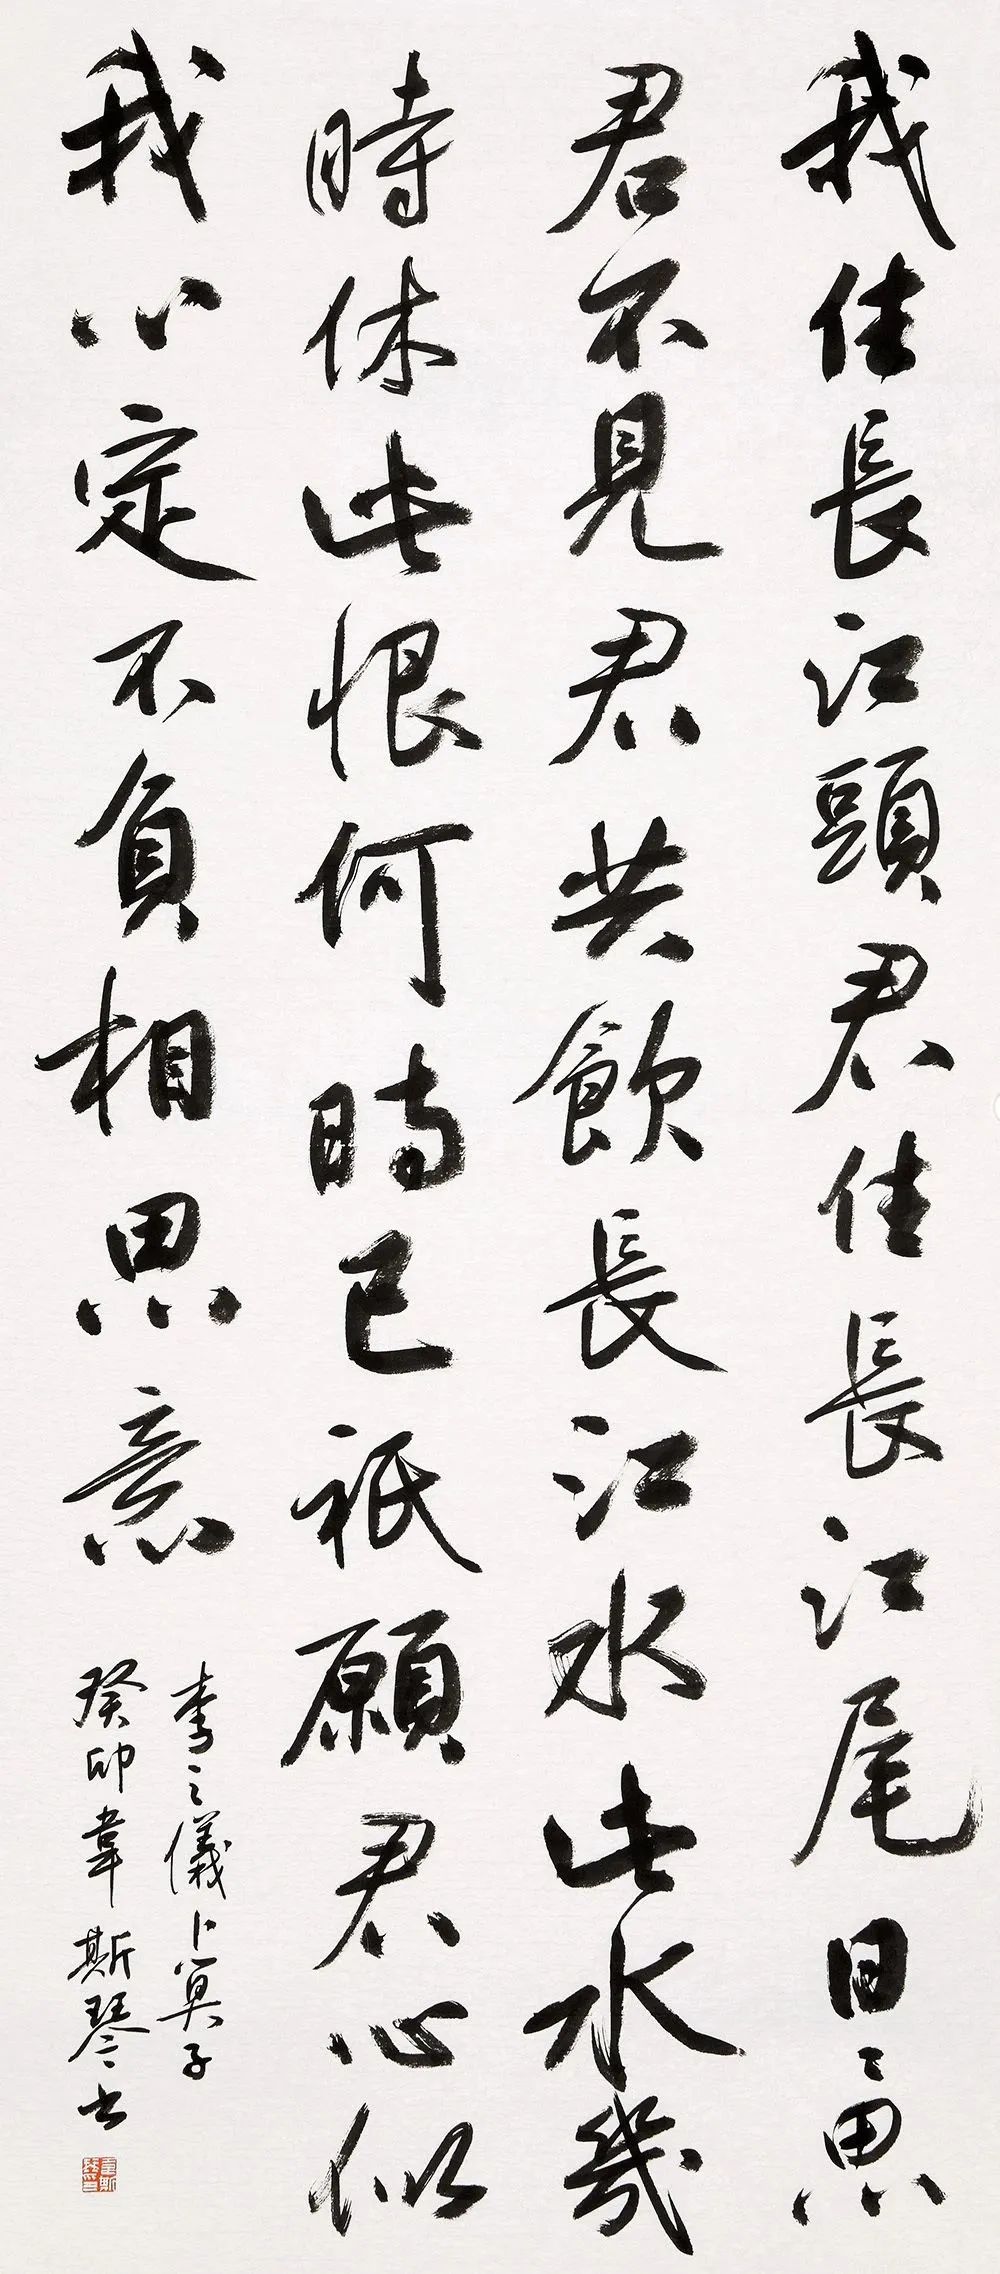 我住長江頭君住長江尾日〻思
君不見君共飲長江水此水幾
時休此恨何時已祇願君心似
我心定不負相思意
李之儀卜算子
癸卯韋斯琴書